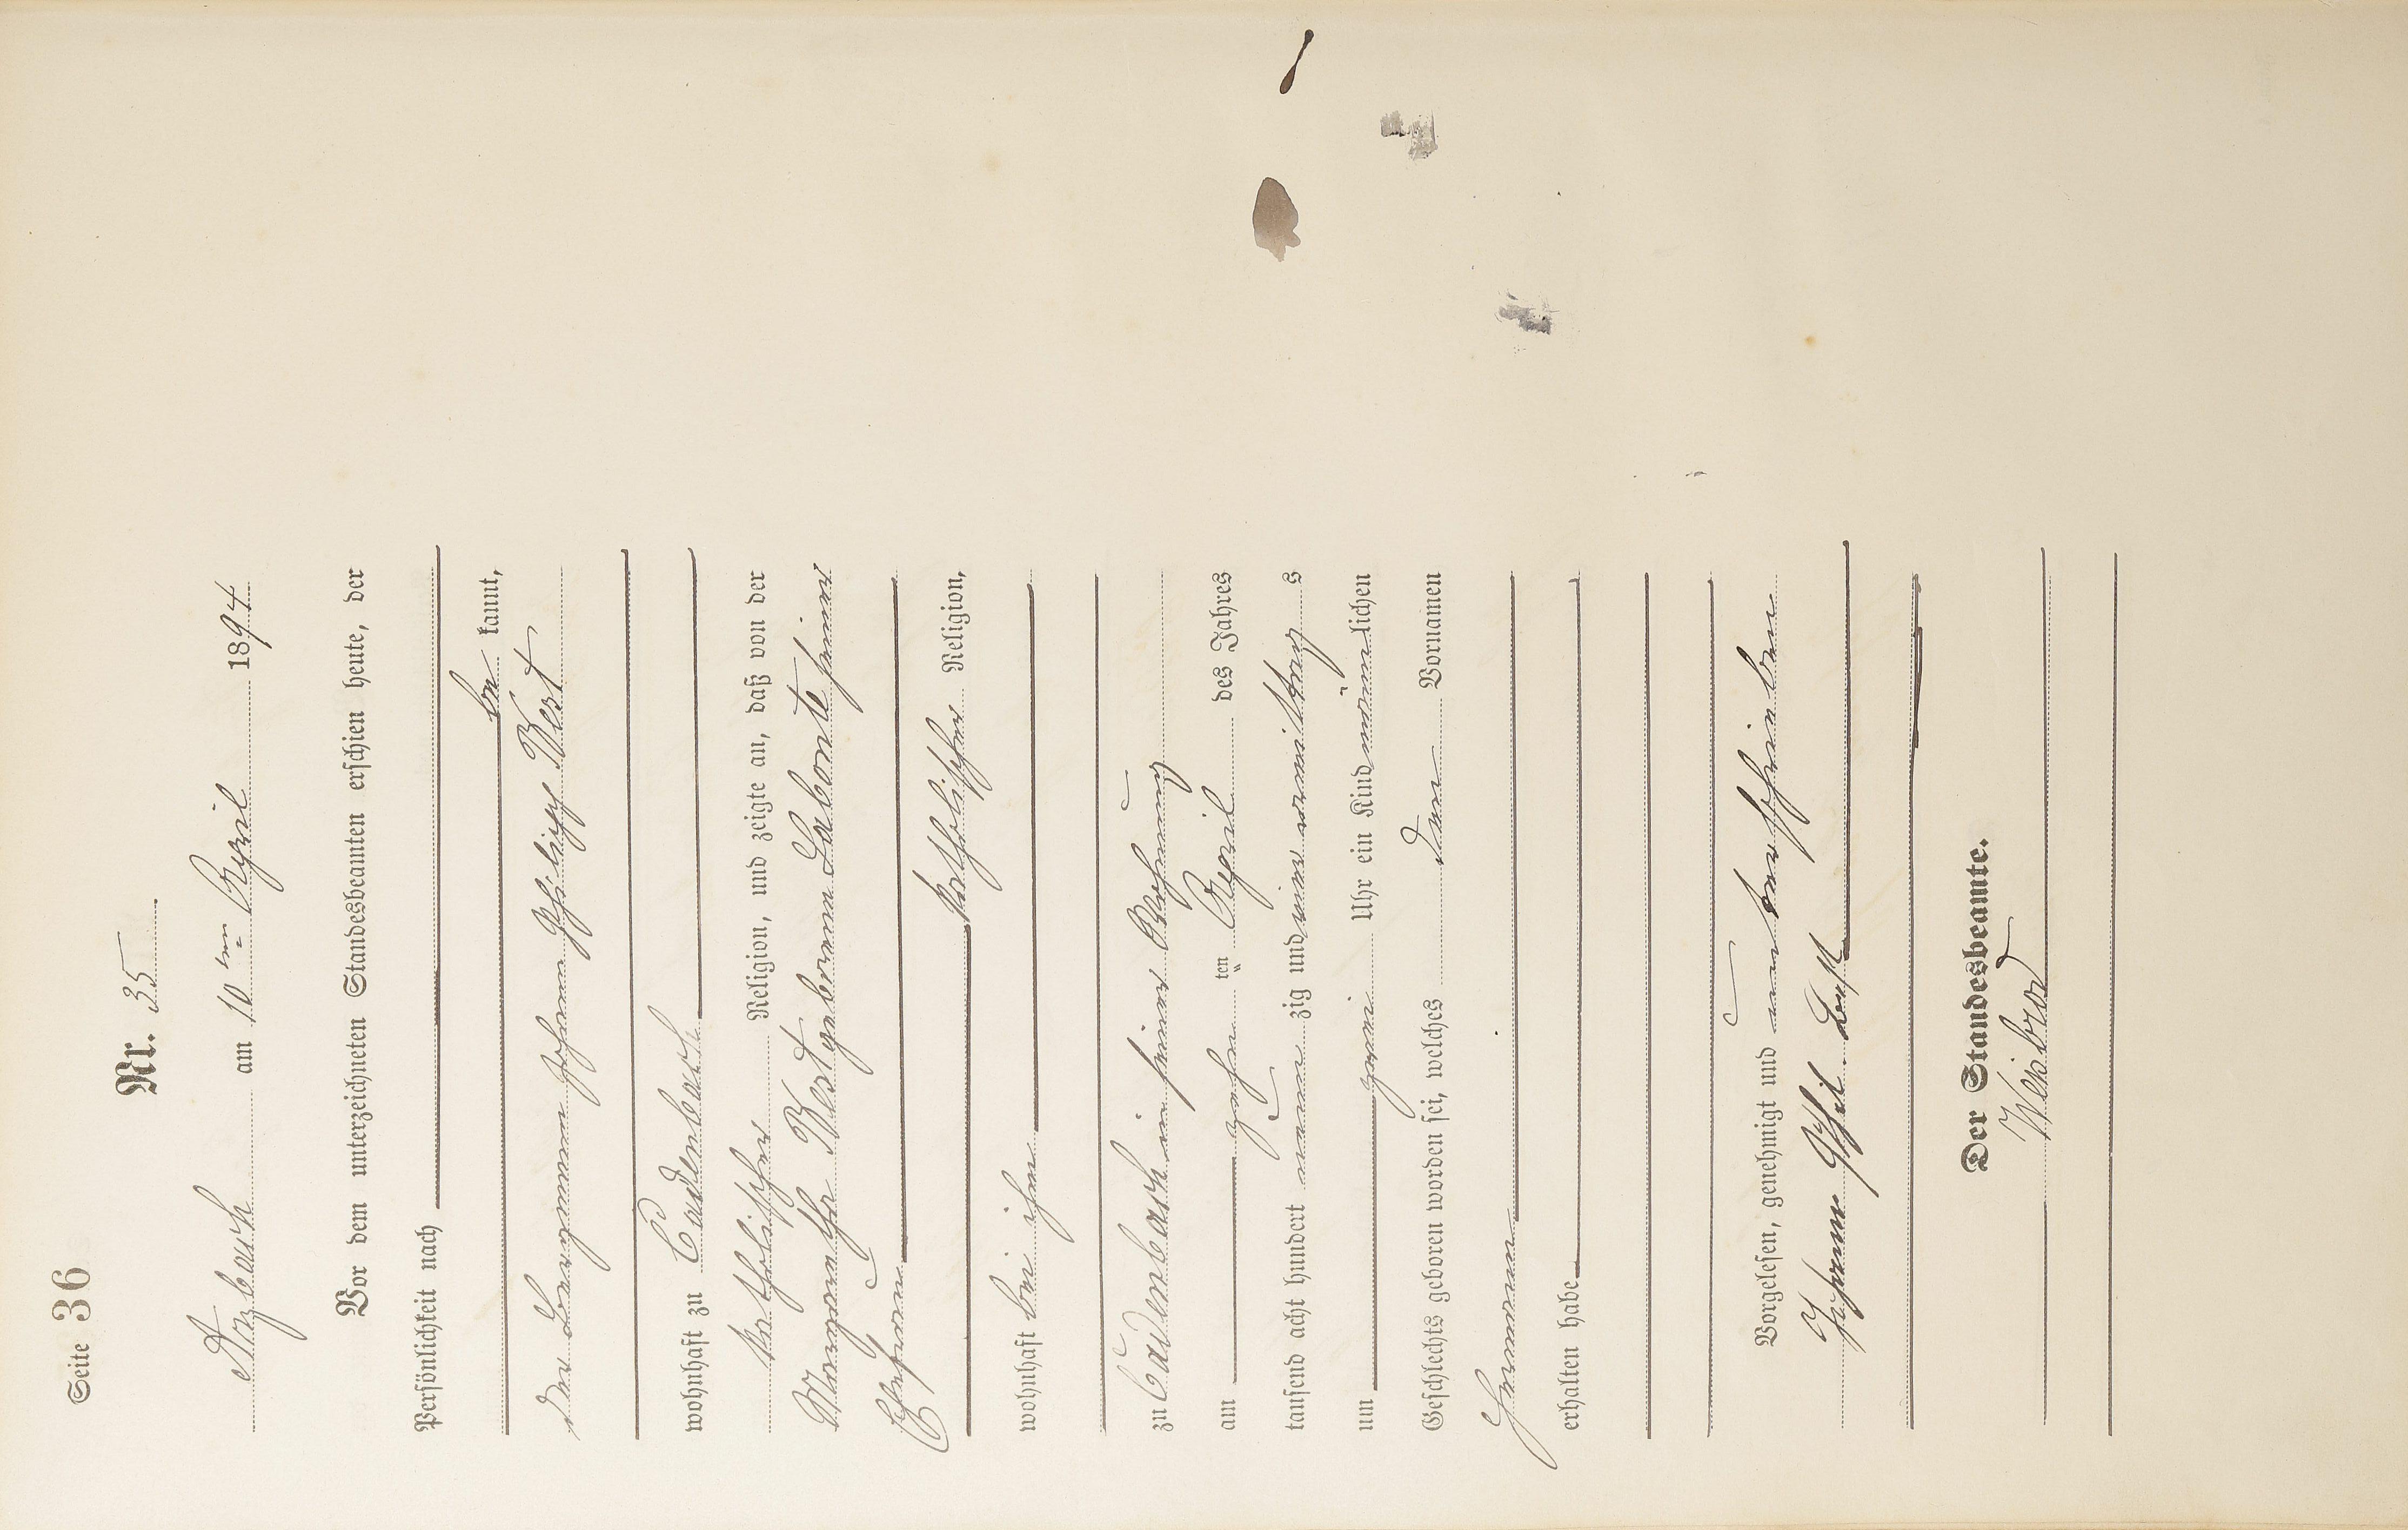 Seite 36
Nr. 35
Arzbach am 10ten April 1894
Vor dem unterzeichneten Standesbeamten erschien heute, der
Persönlichkeit nach
be kannt,
der Bergmann Johann Philipp Best
wohnhaft zu Cadenbach
katholischer Religion, und zeigte an, daß von der
Margaretha Best geborene Labonte seiner
Ehefrau
katholischer Religion,
wohnhaft bei ihm
zu Cadenbach in seiner Wohnung
am zehn ten April des Jahres
tausend acht hundert neun zig und vier vormittags
um zwei Uhr ein Kind männlichen
Geschlechts geboren worden sei, welches den Vornamen
Hermann
erhalten habe
Vorgelesen, genehmigt und unterschrieben
Johann Phil. Best
Der Standesbeamte.